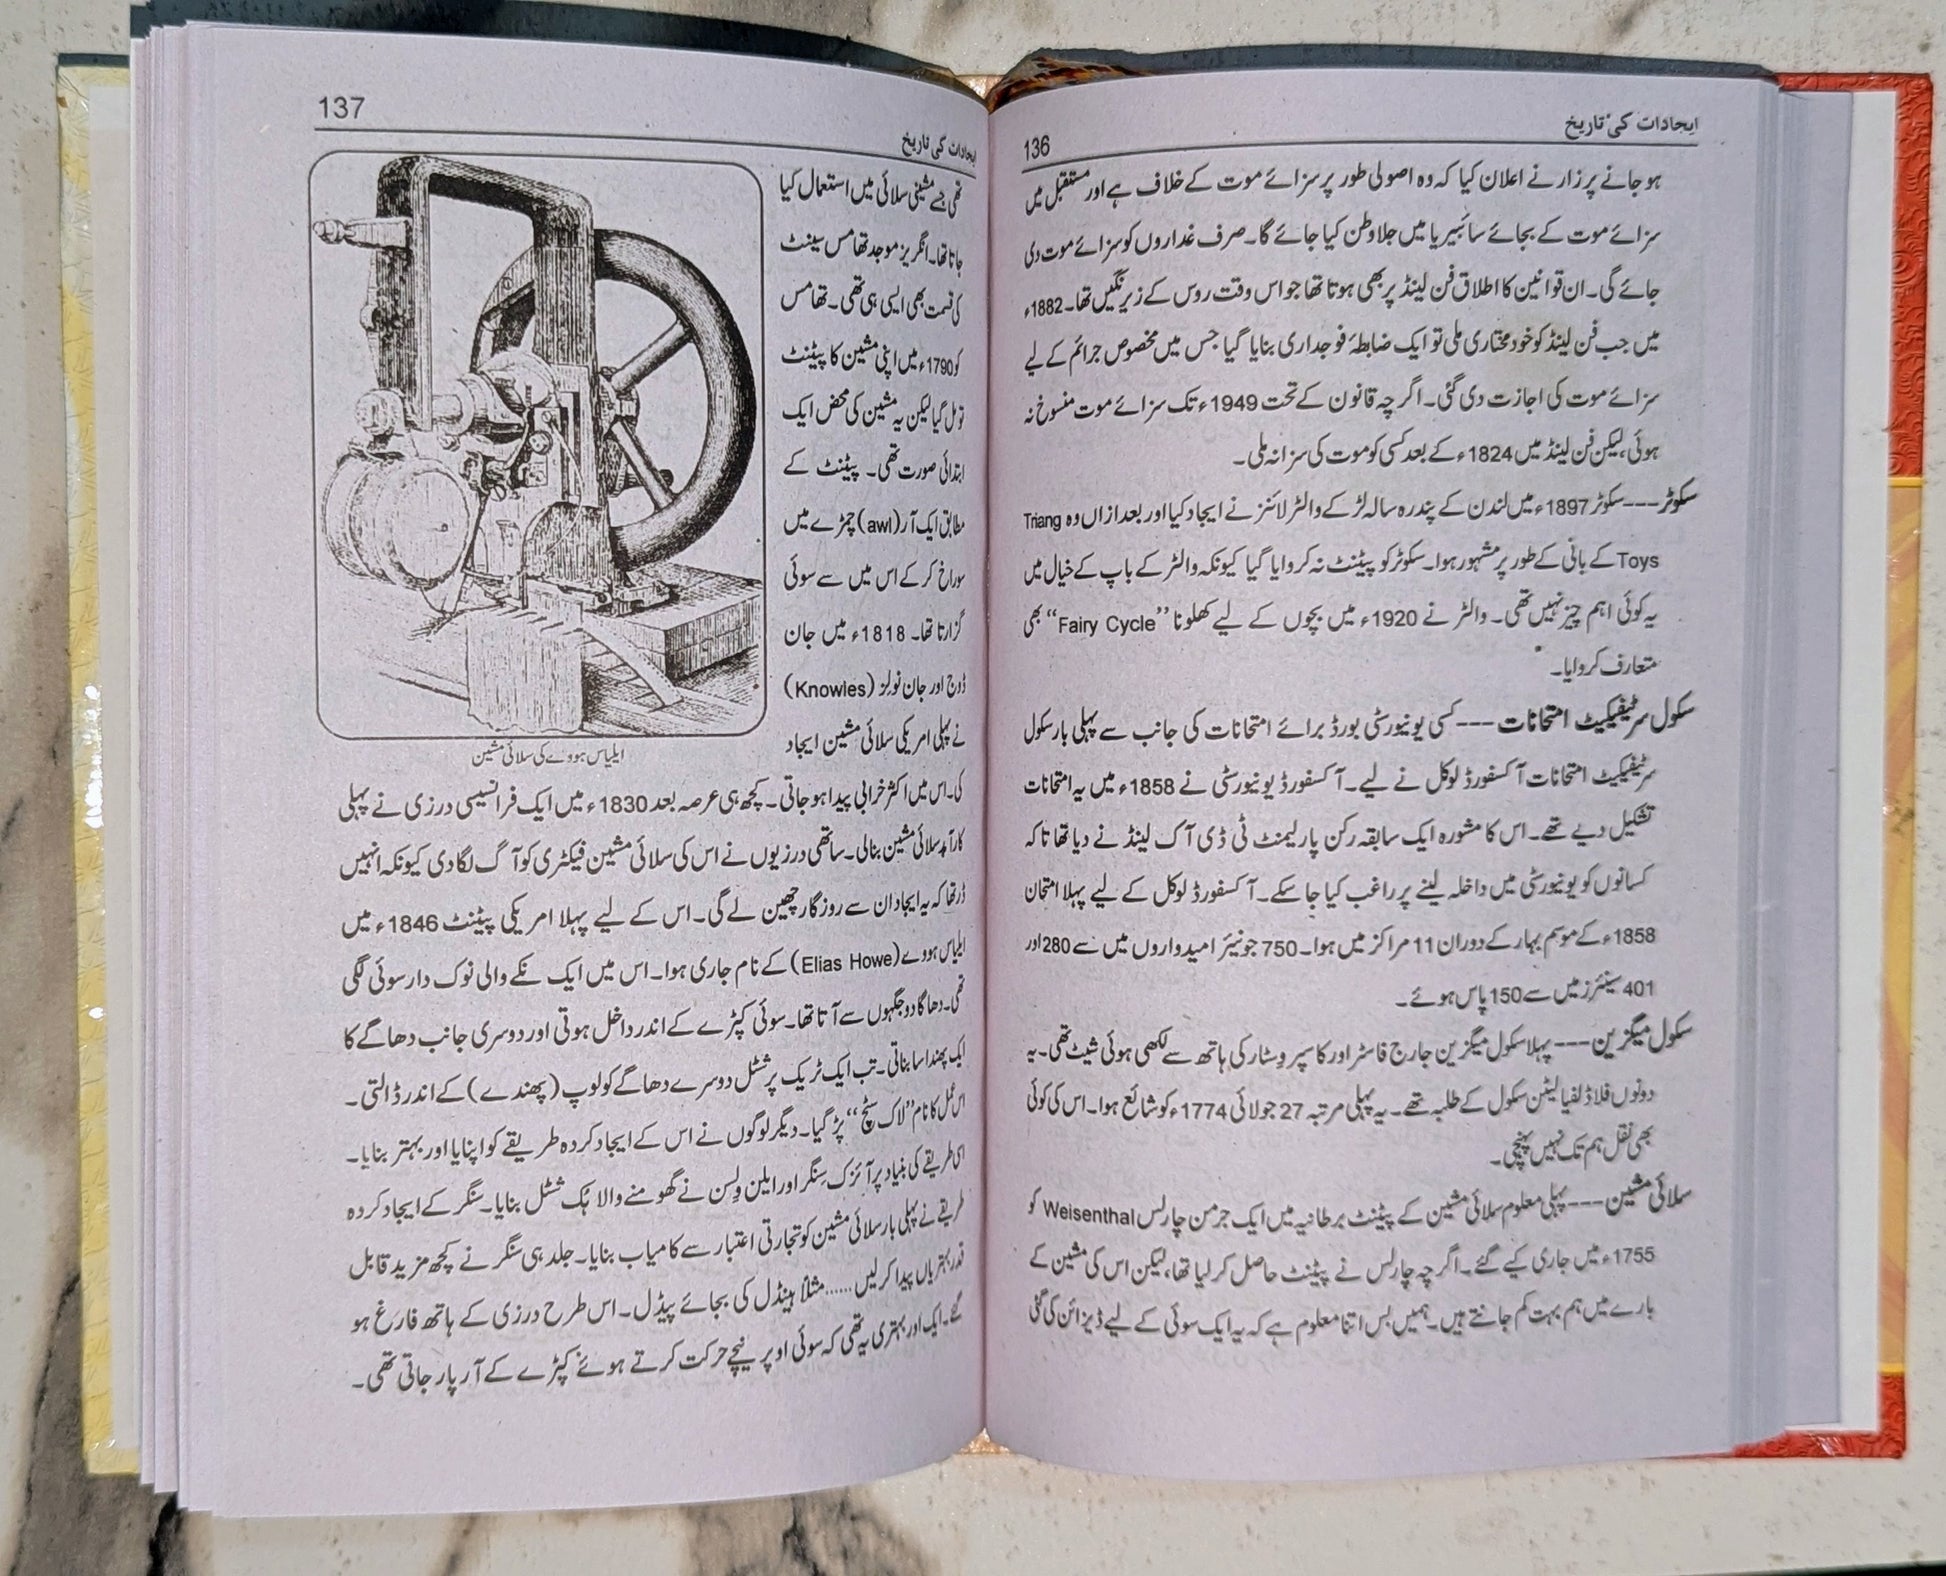 ایجادات کی تاریخ
136
ہو جانے پر زار نے اعلان کیا کہ وہ اصولی طور پر سزائے موت کے خلاف ہے اور مستقبل میں
سزائے موت کے بجائے سائبیریا میں جلاوطن کیا جائے گا۔ صرف غداروں کو سزائے موت دی
جائے گی۔ ان قوانین کا اطلاق فن لینڈ پر بھی ہوتا تھا جو اس وقت روس کے زیر نگیں تھا۔ 1882ء
میں جب فن لینڈ کو خود مختاری ملی تو ایک ضابطۂ فوجداری بنایا گیا جس میں مخصوص جرائم کے لیے
سزائے موت کی اجازت دی گئی۔ اگرچہ قانون کے تحت 1949ء تک سزائے موت منسوخ نہ
ہوئی، لیکن فن لینڈ میں 1824ء کے بعد کسی کو موت کی سزا نہ ملی۔
سکوٹر --- سکوٹر 1897ء میں لندن کے پندرہ سالہ لڑکے والٹر لائنز نے ایجاد کیا اور بعد ازاں وہ Triang
Toys کے بانی کے طور پر مشہور ہوا۔ سکوٹر کو پیٹنٹ نہ کروایا گیا کیونکہ والٹر کے باپ کے خیال میں
یہ کوئی اہم چیز نہیں تھی۔ والٹر نے 1920ء میں بچوں کے لیے کھلونا ”Fairy Cycle“ بھی
متعارف کروایا۔
سکول سرٹیفکیٹ امتحانات --- کسی یونیورسٹی بورڈ برائے امتحانات کی جانب سے پہلی بار سکول
سرٹیفکیٹ امتحانات آکسفورڈ لوکل نے لیے۔ آکسفورڈ یونیورسٹی نے 1858ء میں یہ امتحانات
تشکیل دیے تھے۔ اس کا مشورہ ایک سابقہ رکن پارلیمنٹ ٹی ڈی آک لینڈ نے دیا تھا تاکہ
کسانوں کو یونیورسٹی میں داخلہ لینے پر راغب کیا جا سکے۔ آکسفورڈ لوکل کے لیے پہلا امتحان
1858ء کے موسم بہار کے دوران 11 مراکز میں ہوا۔ 750 جونیئر امیدواروں میں سے 280 اور
401 سینئرز میں سے 150 پاس ہوئے۔
سکول میگزین --- پہلا سکول میگزین جارج فاسٹر اور کاسپر وسٹار کی ہاتھ سے لکھی ہوئی شیٹ تھی۔ یہ
دونوں فلاڈلفیا لیٹن سکول کے طلبہ تھے۔ یہ پہلی مرتبہ 27 جولائی 1774ء کو شائع ہوا۔ اس کی کوئی
بھی نقل ہم تک نہیں پہنچی۔
سلائی مشین --- پہلی معلوم سلائی مشین کے پیٹنٹ برطانیہ میں ایک جرمن چارلس Weisenthal کو
1755ء میں جاری کیے گئے۔ اگرچہ چارلس نے پیٹنٹ حاصل کر لیا تھا، لیکن اس کی مشین کے
بارے میں ہم بہت کم جانتے ہیں۔ ہمیں بس اتنا معلوم ہے کہ یہ ایک سوئی کے لیے ڈیزائن کی گئی
137
ایجادات کی تاریخ
تھی جسے مشینی سلائی میں استعمال کیا
جاتا تھا۔ انگریز موجد تھامس سینٹ
کی قسمت بھی ایسی ہی تھی۔ تھامس
کو 1790ء میں اپنی مشین کا پیٹنٹ
تو مل گیا لیکن یہ مشین کی محض ایک
ابتدائی صورت تھی۔ پیٹنٹ کے
مطابق ایک آر (awl) چمڑے میں
سوراخ کر کے اس میں سے سوئی
گزارتا تھا۔ 1818ء میں جان
ڈوج اور جان نولز (Knowles)
نے پہلی امریکی سلائی مشین ایجاد
ایلیاس ہووے کی سلائی مشین
کی۔ اس میں اکثر خرابی پیدا ہو جاتی۔ کچھ ہی عرصہ بعد 1830ء میں ایک فرانسیسی درزی نے پہلی
کارآمد سلائی مشین بنالی۔ ساتھی درزیوں نے اس کی سلائی مشین فیکٹری کو آگ لگا دی کیونکہ انہیں
ڈر تھا کہ یہ ایجاد ان سے روزگار چھین لے گی۔ اس کے لیے پہلا امریکی پیٹنٹ 1846ء میں
ایلیاس ہووے (Elias Howe) کے نام جاری ہوا۔ اس میں ایک نکے والی نوک دار سوئی لگی
تھی۔ دھاگا دو جگہوں سے آتا تھا۔ سوئی کپڑے کے اندر داخل ہوتی اور دوسری جانب دھاگے کا
ایک پھندا سا بناتی۔ تب ایک ٹریک پر شٹل دوسرے دھاگے کو لوپ (پھندے) کے اندر ڈالتی۔
اس عمل کا نام ”لاک سٹچ“ پڑ گیا۔ دیگر لوگوں نے اس کے ایجاد کردہ طریقے کو اپنایا اور بہتر بنایا۔
اسی طریقے کی بنیاد پر آئزک سنگر اور ایلن ولسن نے گھومنے والا ہک شٹل بنایا۔ سنگر کے ایجاد کردہ
طریقے نے پہلی بار سلائی مشین کو تجارتی اعتبار سے کامیاب بنایا۔ جلد ہی سنگر نے کچھ مزید قابل
قدر بہتریاں پیدا کر لیں...... مثلاً ہینڈل کی بجائے پیڈل۔ اس طرح درزی کے ہاتھ فارغ ہو
گئے۔ ایک اور بہتری یہ تھی کہ سوئی اوپر نیچے حرکت کرتے ہوئے کپڑے کے آر پار جاتی تھی۔